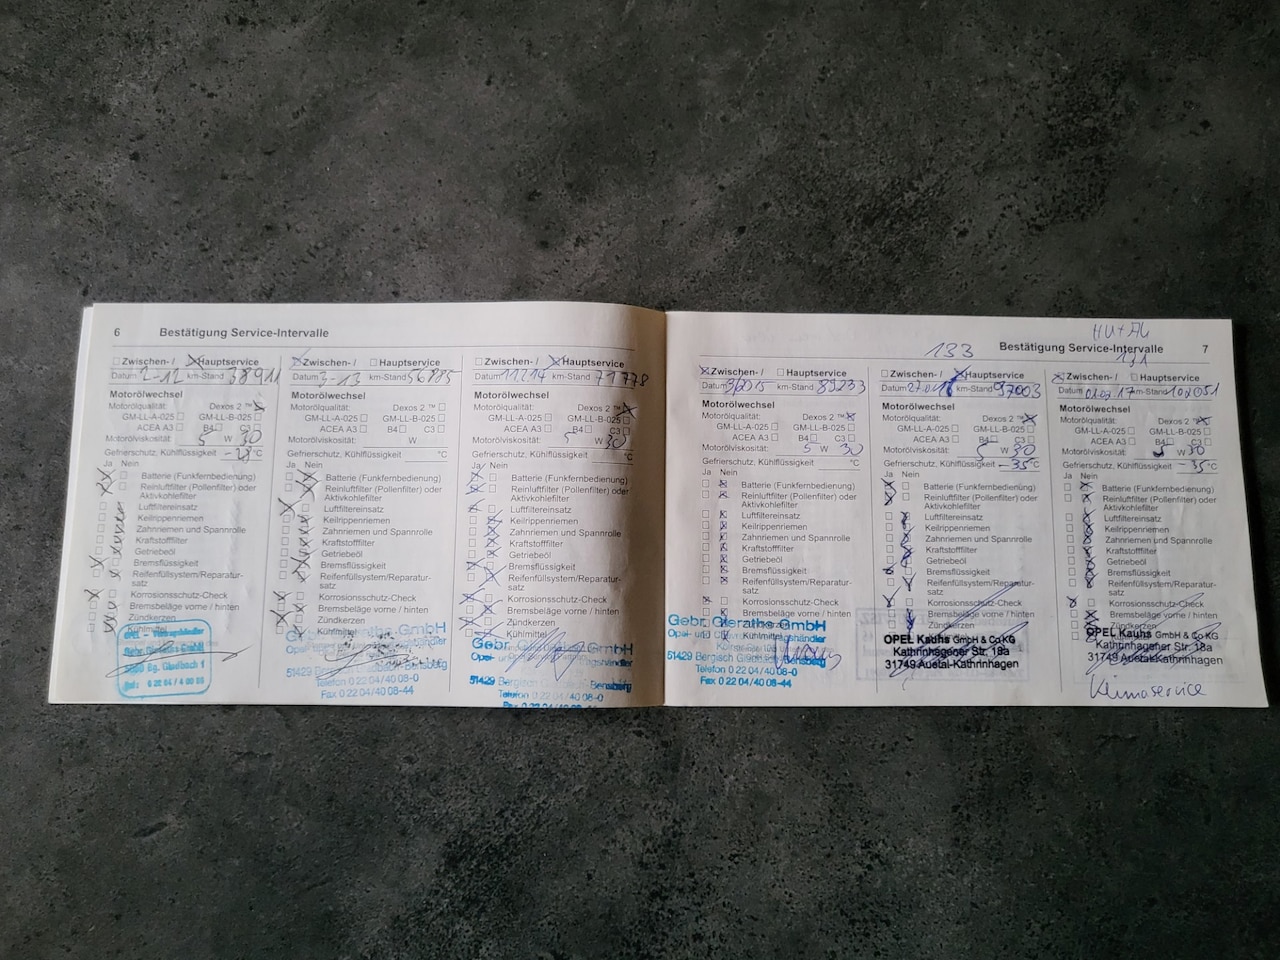 6 Bestätigung Service-Intervalle
Zwischen-/ Hauptservice
Datum 2-12 km-Stand 38911
Motorölwechsel
Motorölqualität: Dexos 2 ™
GM-LL-A-025 GM-LL-B-025
ACEA A3 B4 C3
Motorölviskosität: 5 W 30
Gefrierschutz, Kühlflüssigkeit °C
Ja Nein
Batterie (Funkfernbedienung)
Reinluftfilter (Pollenfilter) oder
Aktivkohlefilter
Luftfiltereinsatz
Keilrippenriemen
Zahnriemen und Spannrolle
Kraftstofffilter
Getriebeöl
Bremsflüssigkeit
Reifenfüllsystem/Reparatur-
satz
Korrosionsschutz-Check
Bremsbeläge vorne / hinten
Zündkerzen
Kühlmittel
OPEL - Vertragshändler
Gebr. Gieraths GmbH
Bg. Gladbach 1
Zwischen-/ Hauptservice
Datum 3-13 km-Stand 56885
Motorölwechsel
Motorölqualität: Dexos 2 ™
GM-LL-A-025 GM-LL-B-025
ACEA A3 B4 C3
Motorölviskosität: W
Gefrierschutz, Kühlflüssigkeit °C
Ja Nein
Batterie (Funkfernbedienung)
Reinluftfilter (Pollenfilter) oder
Aktivkohlefilter
Luftfiltereinsatz
Keilrippenriemen
Zahnriemen und Spannrolle
Kraftstofffilter
Getriebeöl
Bremsflüssigkeit
Reifenfüllsystem/Reparatur-
satz
Korrosionsschutz-Check
Bremsbeläge vorne / hinten
Zündkerzen
Kühlmittel
Gebr. Gieraths GmbH
51429 Bergisch
Telefon 0 22 04 / 40 08-0
Fax 0 22 04 / 40 08-44
Zwischen-/ Hauptservice
Datum 11214 km-Stand 71778
Motorölwechsel
Motorölqualität: Dexos 2 ™
GM-LL-A-025 GM-LL-B-025
ACEA A3 B4 C3
Motorölviskosität: 5 W 30
Gefrierschutz, Kühlflüssigkeit °C
Ja Nein
Batterie (Funkfernbedienung)
Reinluftfilter (Pollenfilter) oder
Aktivkohlefilter
Luftfiltereinsatz
Keilrippenriemen
Zahnriemen und Spannrolle
Kraftstofffilter
Getriebeöl
Bremsflüssigkeit
Reifenfüllsystem/Reparatur-
satz
Korrosionsschutz-Check
Bremsbeläge vorne / hinten
Zündkerzen
Kühlmittel
Gebr. GmbH
Opel-
51429 Bergisch Bensberg
Telefon 0 22 04 / 40 08-0
Fax 0 22 04 / 40 08-44
HU+AU
133
Bestätigung Service-Intervalle 7
Zwischen-/ Hauptservice
Datum km-Stand 89233
Motorölwechsel
Motorölqualität: Dexos 2 ™
GM-LL-A-025 GM-LL-B-025
ACEA A3 B4 C3
Motorölviskosität: 5 W 30
Gefrierschutz, Kühlflüssigkeit °C
Ja Nein
Batterie (Funkfernbedienung)
Reinluftfilter (Pollenfilter) oder
Aktivkohlefilter
Luftfiltereinsatz
Keilrippenriemen
Zahnriemen und Spannrolle
Kraftstofffilter
Getriebeöl
Bremsflüssigkeit
Reifenfüllsystem/Reparatur-
satz
Korrosionsschutz-Check
Bremsbeläge vorne / hinten
Zündkerzen
Kühlmittel
Gebr. Gieraths GmbH
51429 Bergisch Bensberg
Telefon 0 22 04 / 40 08-0
Fax 0 22 04 / 40 08-44
Zwischen-/ Hauptservice
Datum km-Stand 97003
Motorölwechsel
Motorölqualität: Dexos 2 ™
GM-LL-A-025 GM-LL-B-025
ACEA A3 B4 C3
Motorölviskosität: 5 W 30
Gefrierschutz, Kühlflüssigkeit -35 °C
Ja Nein
Batterie (Funkfernbedienung)
Reinluftfilter (Pollenfilter) oder
Aktivkohlefilter
Luftfiltereinsatz
Keilrippenriemen
Zahnriemen und Spannrolle
Kraftstofffilter
Getriebeöl
Bremsflüssigkeit
Reifenfüllsystem/Reparatur-
satz
Korrosionsschutz-Check
Bremsbeläge vorne / hinten
Zündkerzen
OPEL Kauhs GmbH & Co KG
Kathrinhagener Str. 18a
31749 Auetal-Kathrinhagen
Zwischen-/ Hauptservice
Datum km-Stand 102051
Motorölwechsel
Motorölqualität: Dexos 2 ™
GM-LL-A-025 GM-LL-B-025
ACEA A3 B4 C3
Motorölviskosität: 5 W 30
Gefrierschutz, Kühlflüssigkeit -35 °C
Ja Nein
Batterie (Funkfernbedienung)
Reinluftfilter (Pollenfilter) oder
Aktivkohlefilter
Luftfiltereinsatz
Keilrippenriemen
Zahnriemen und Spannrolle
Kraftstofffilter
Getriebeöl
Bremsflüssigkeit
Reifenfüllsystem/Reparatur-
satz
Korrosionsschutz-Check
Bremsbeläge vorne / hinten
Zündkerzen
OPEL Kauhs GmbH & Co KG
Kathrinhagener Str. 18a
31749 Auetal-Kathrinhagen
Klimaservice